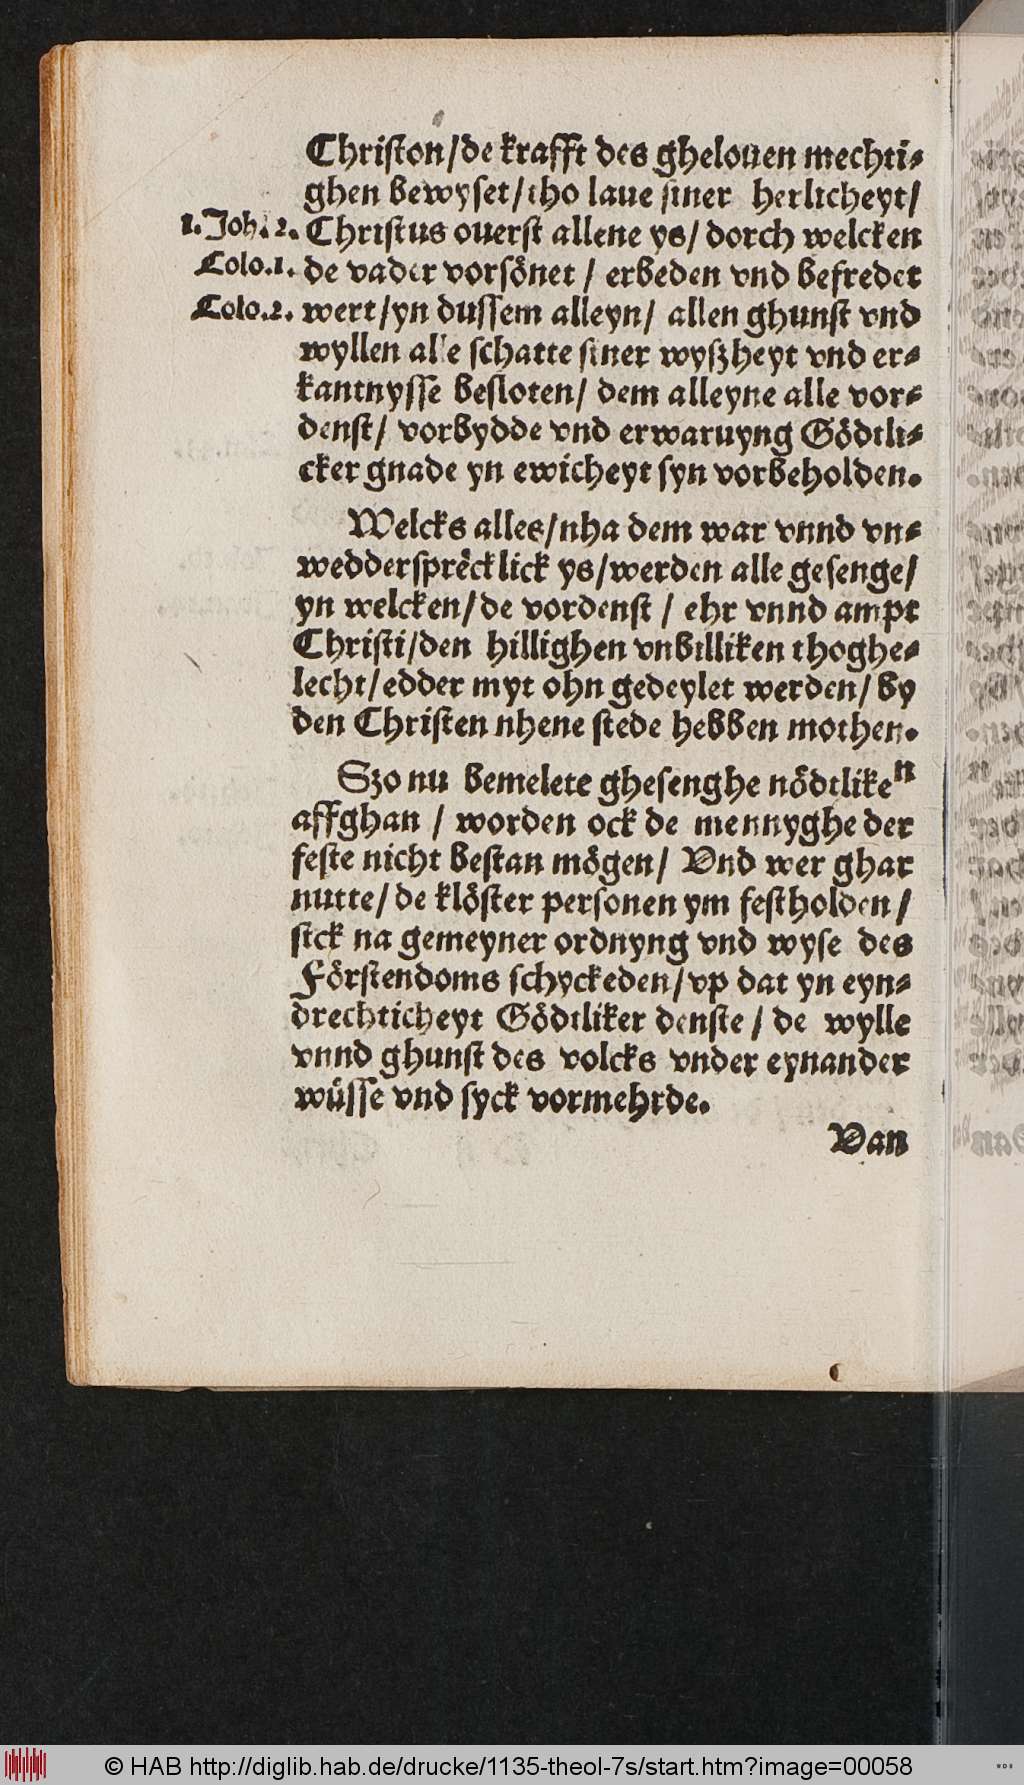 Christon/de krafft des ghelouen mechti⸗
ghen bewyset/tho laue siner herlicheyt/
1. Joh. 2. Christus ouerst allene ys/ dorch welcken
Colo.1. de vader vorsönet / erbeden vnd befredet
Colo.2. wert/yn dussem alleyn/ allen ghunst vnd
wyllen alle schatte siner wyßheyt vnd er⸗
kantnysse besloten/ dem alleyne alle vor⸗
denst/ vorbydde vnd erwaruyng Gödtli⸗
cker gnade yn ewicheyt syn vorbeholden.
Welcks alles/nha dem war vnnd vn⸗
weddersprecklick ys/werden alle gesenge/
yn welcken/de vordenst / ehr vnnd ampt
Christi/den hillighen vnbilliken thoghe⸗
lecht/edder myt ohn gedeylet werden/ by
den Christen nhene stede hebben mothen.
Szo nu bemelete ghesenghe nödtliken
affghan / worden ock de mennyghe der
feste nicht bestan mögen/ Vnd wer ghar
nutte/de klöster personen ym festholden/
sick na gemeyner ordnyng vnd wyse des
Förstendoms schyckeden/vp dat yn eyn⸗
drechticheyt Gödtliker denste / de wylle
vnnd ghunst des volcks vnder eynander
wüsse vnd syck vormehrde.
Van
© HAB http://diglib.hab.de/drucke/1135-theol-7s/start.htm?image=00058